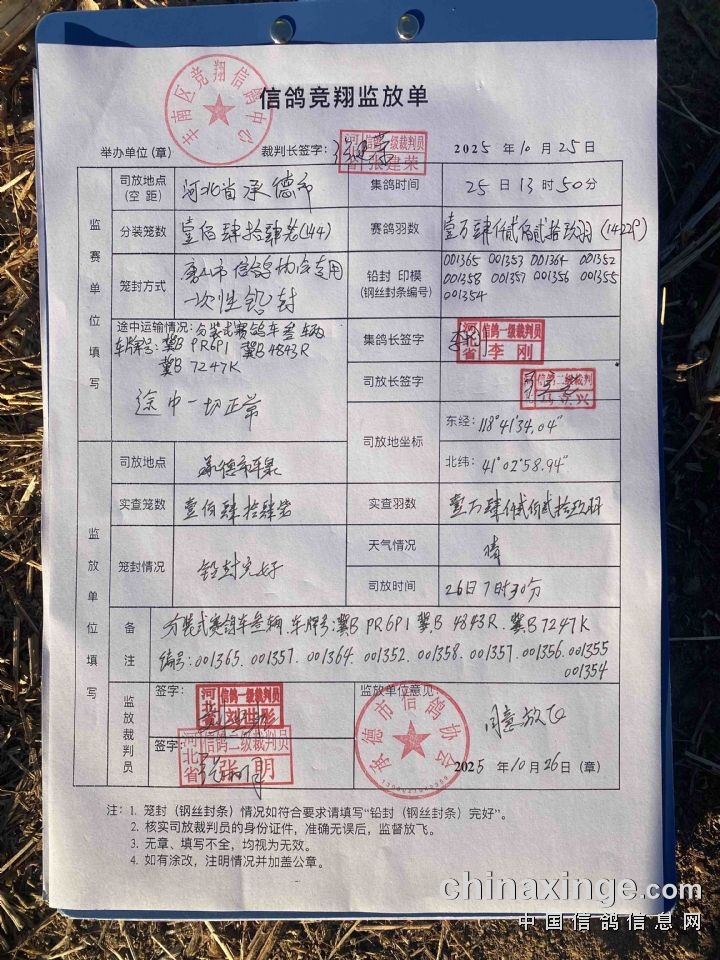 信鸽竞翔监放单
丰南区竞翔信鸽中心
举办单位(章) 裁判长签字: 2025 年 10 月 25 日
河北省 信鸽一级裁判员 张建荣
监赛单位填写
司放地点(空距) 河北省承德市 集鸽时间 25日13时50分
分装笼数 壹佰肆拾肆笼(144) 赛鸽羽数 壹万肆仟贰佰贰拾玖羽(14229)
笼封方式 唐山市信鸽协会专用一次性铅封 铅封 印模(钢丝封条编号)
001365 001353 001364 001352
001358 001357 001356 001355
001354
途中运输情况: 分装式赛鸽车叁辆
车牌号: 冀B PR6P1 冀B 4843R
冀B 7247K
途中一切正常
集鸽长签字 河北省 信鸽一级裁判员 李刚
司放长签字 信鸽二级裁判
司放地坐标 东经: 118°41′34.04″
北纬: 41°02′58.94″
监放单位填写
司放地点 承德市平泉
实查笼数 壹佰肆拾肆笼 实查羽数 壹万肆仟贰佰贰拾玖羽
笼封情况 铅封完好 天气情况 晴
司放时间 26日7时30分
备注 分装式赛鸽车叁辆.车牌号:冀B PR6P1 冀B 4843R.冀B 7247K
编号:001365.001357.001364.001352.001358.001357.001356.001355
001354
监放裁判员
签字: 河北 信鸽一级裁判员
签字: 河北省 信鸽二级裁判员 张明
监放单位意见: 同意放飞
承德市信鸽协会
2025 年 10 月 26 日 (章)
注: 1. 笼封(钢丝封条)情况如符合要求请填写“铅封(钢丝封条)完好”。
2. 核实司放裁判员的身份证件,准确无误后,监督放飞。
3. 无章、填写不全,均视为无效。
4. 如有涂改,注明情况并加盖公章。
chinaxinge.com
中国信鸽信息网